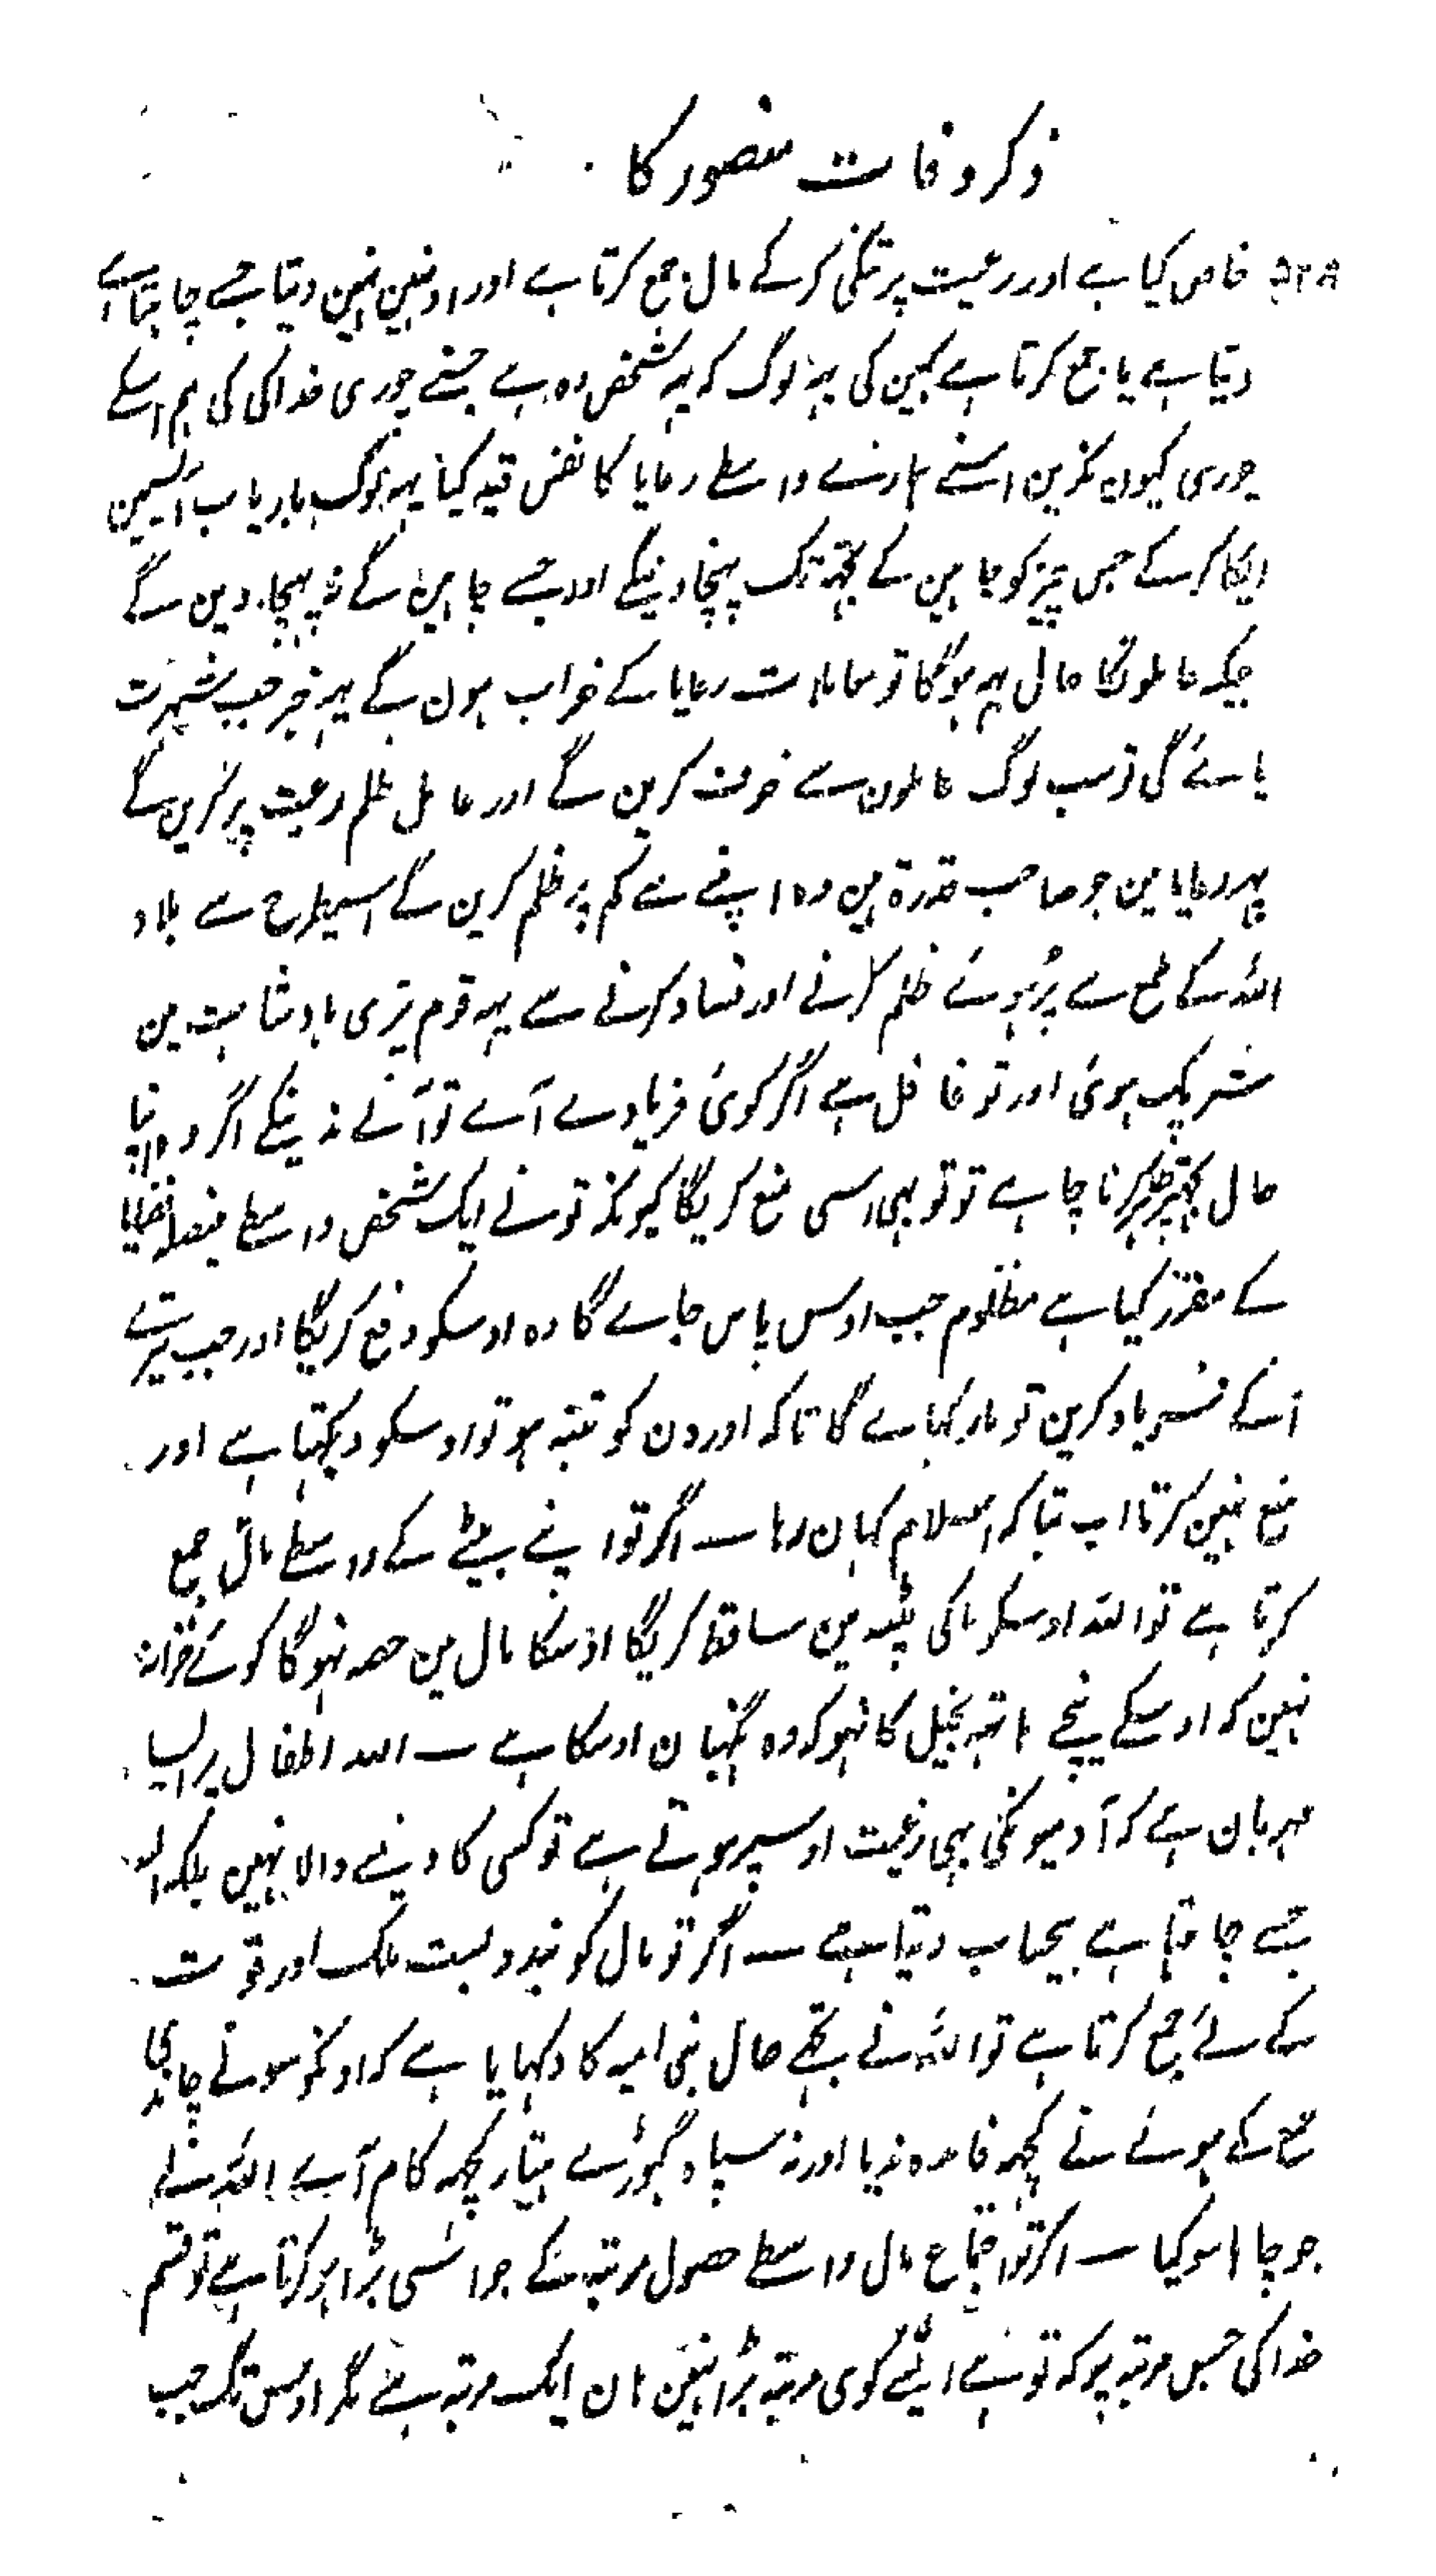 ذکر وفات منصور کا
خاص کیا ہے اور رعیت پر تنگی کر کے مال جمع کرتا ہے اور اونہین نہین دیتا جسے چاہتا ہے
دیتا ہے یا جمع کرتا ہے کہین کی یہہ لوگ کہ یہہ شخص وہ ہے جسنے چوری خدا کی کی ہم اسکے
چوری کیون نکرین اسنے ہارنے واسطے رعایا کا نفس قید کیا یہہ لوگ باریاب آپسمین
ایکا کر کے جس چیز کو چاہین کے تجہہ تک پہنچا دینگے اور جسے چاہین گے نہ پہچا دین گے
جبکہ عاملونکا حال یہہ ہوگا تو معاملات رعایا کے خراب ہون گے یہہ خبر جب شہرت
پائے گی تو سب لوگ عاملون سے خوف کرین گے اور عامل ظلم رعیت پر کرین گے
پہر رعایا مین جو صاحب قدرۃ ہین وہ اپنے سے کم پر ظلم کرین گے اسیطرح سے بلاد
اللہ کے طمع سے پُر ہوئے ظلم کرنے اور فساد کرنے سے یہہ قوم تیری بادشاہت مین
شریک ہوئی اور تو غافل ہے اگر کوئی فریادے آے تو آنے ندینگے اگر وہ اپنا
حال تجہپر ظاہر کرنا چاہے تو تو بہی اسی منع کریگا کیونکہ تو نے ایک شخص واسطے فیصلہ قضایا
کے مقرر کیا ہے مظلوم جب اوس پاس جاے گا وہ اوسکو دفع کریگا اور جب تیرے
آگے فریاد کرین تو مار کہاے گا تا کہ اورون کو تنبہ ہو تو اوسکو دیکہتا ہے اور
منع نہین کرتا اب بتا کہ اسلام کہان رہا ۔ اگر تو اپنے بیٹے کے واسطے مال جمع
کرتا ہے تو اللہ اوسکو ماکی پیٹ مین ساقط کریگا اوسکا مال مین حصہ نہوگا کوئے خزانہ
نہین کہ اوسکے نیچے ہاتہہ بخیل کا نہو کہ وہ نگہبان اوسکا ہے ۔ اللہ اطفال پر ایسا
مہربان ہے کہ آدمیونکی بہی رغبت اوسپر ہوتے ہے تو کسی کا دینے والا نہین بلکہ اللہ
جسے چاہتا ہے بیحساب دیتا ہے ۔ اگر تو مال کو بندوبست ملک اور قوت
کے لئے جمع کرتا ہے تو اللہ نے تجہے حال بنی امیہ کا دکہایا ہے کہ اونکو سونے چاندی
جمع کے ہوئے نے کچہہ فائدہ ندیا اور نہ سپاہ گہوڑے ہتیار کچہہ کام آے اللہ نے
جو چاہا سو کیا ۔ اگر تو اجتماع مال واسطے حصول مرتبہ کے جو اسسی بڑا ہو کرتا ہے تو قسم
خدا کی جس مرتبہ پر کہ تو ہے اسے کوی مرتبہ بڑا نہین ہان ایک مرتبہ ہے مگر اوس تک جب